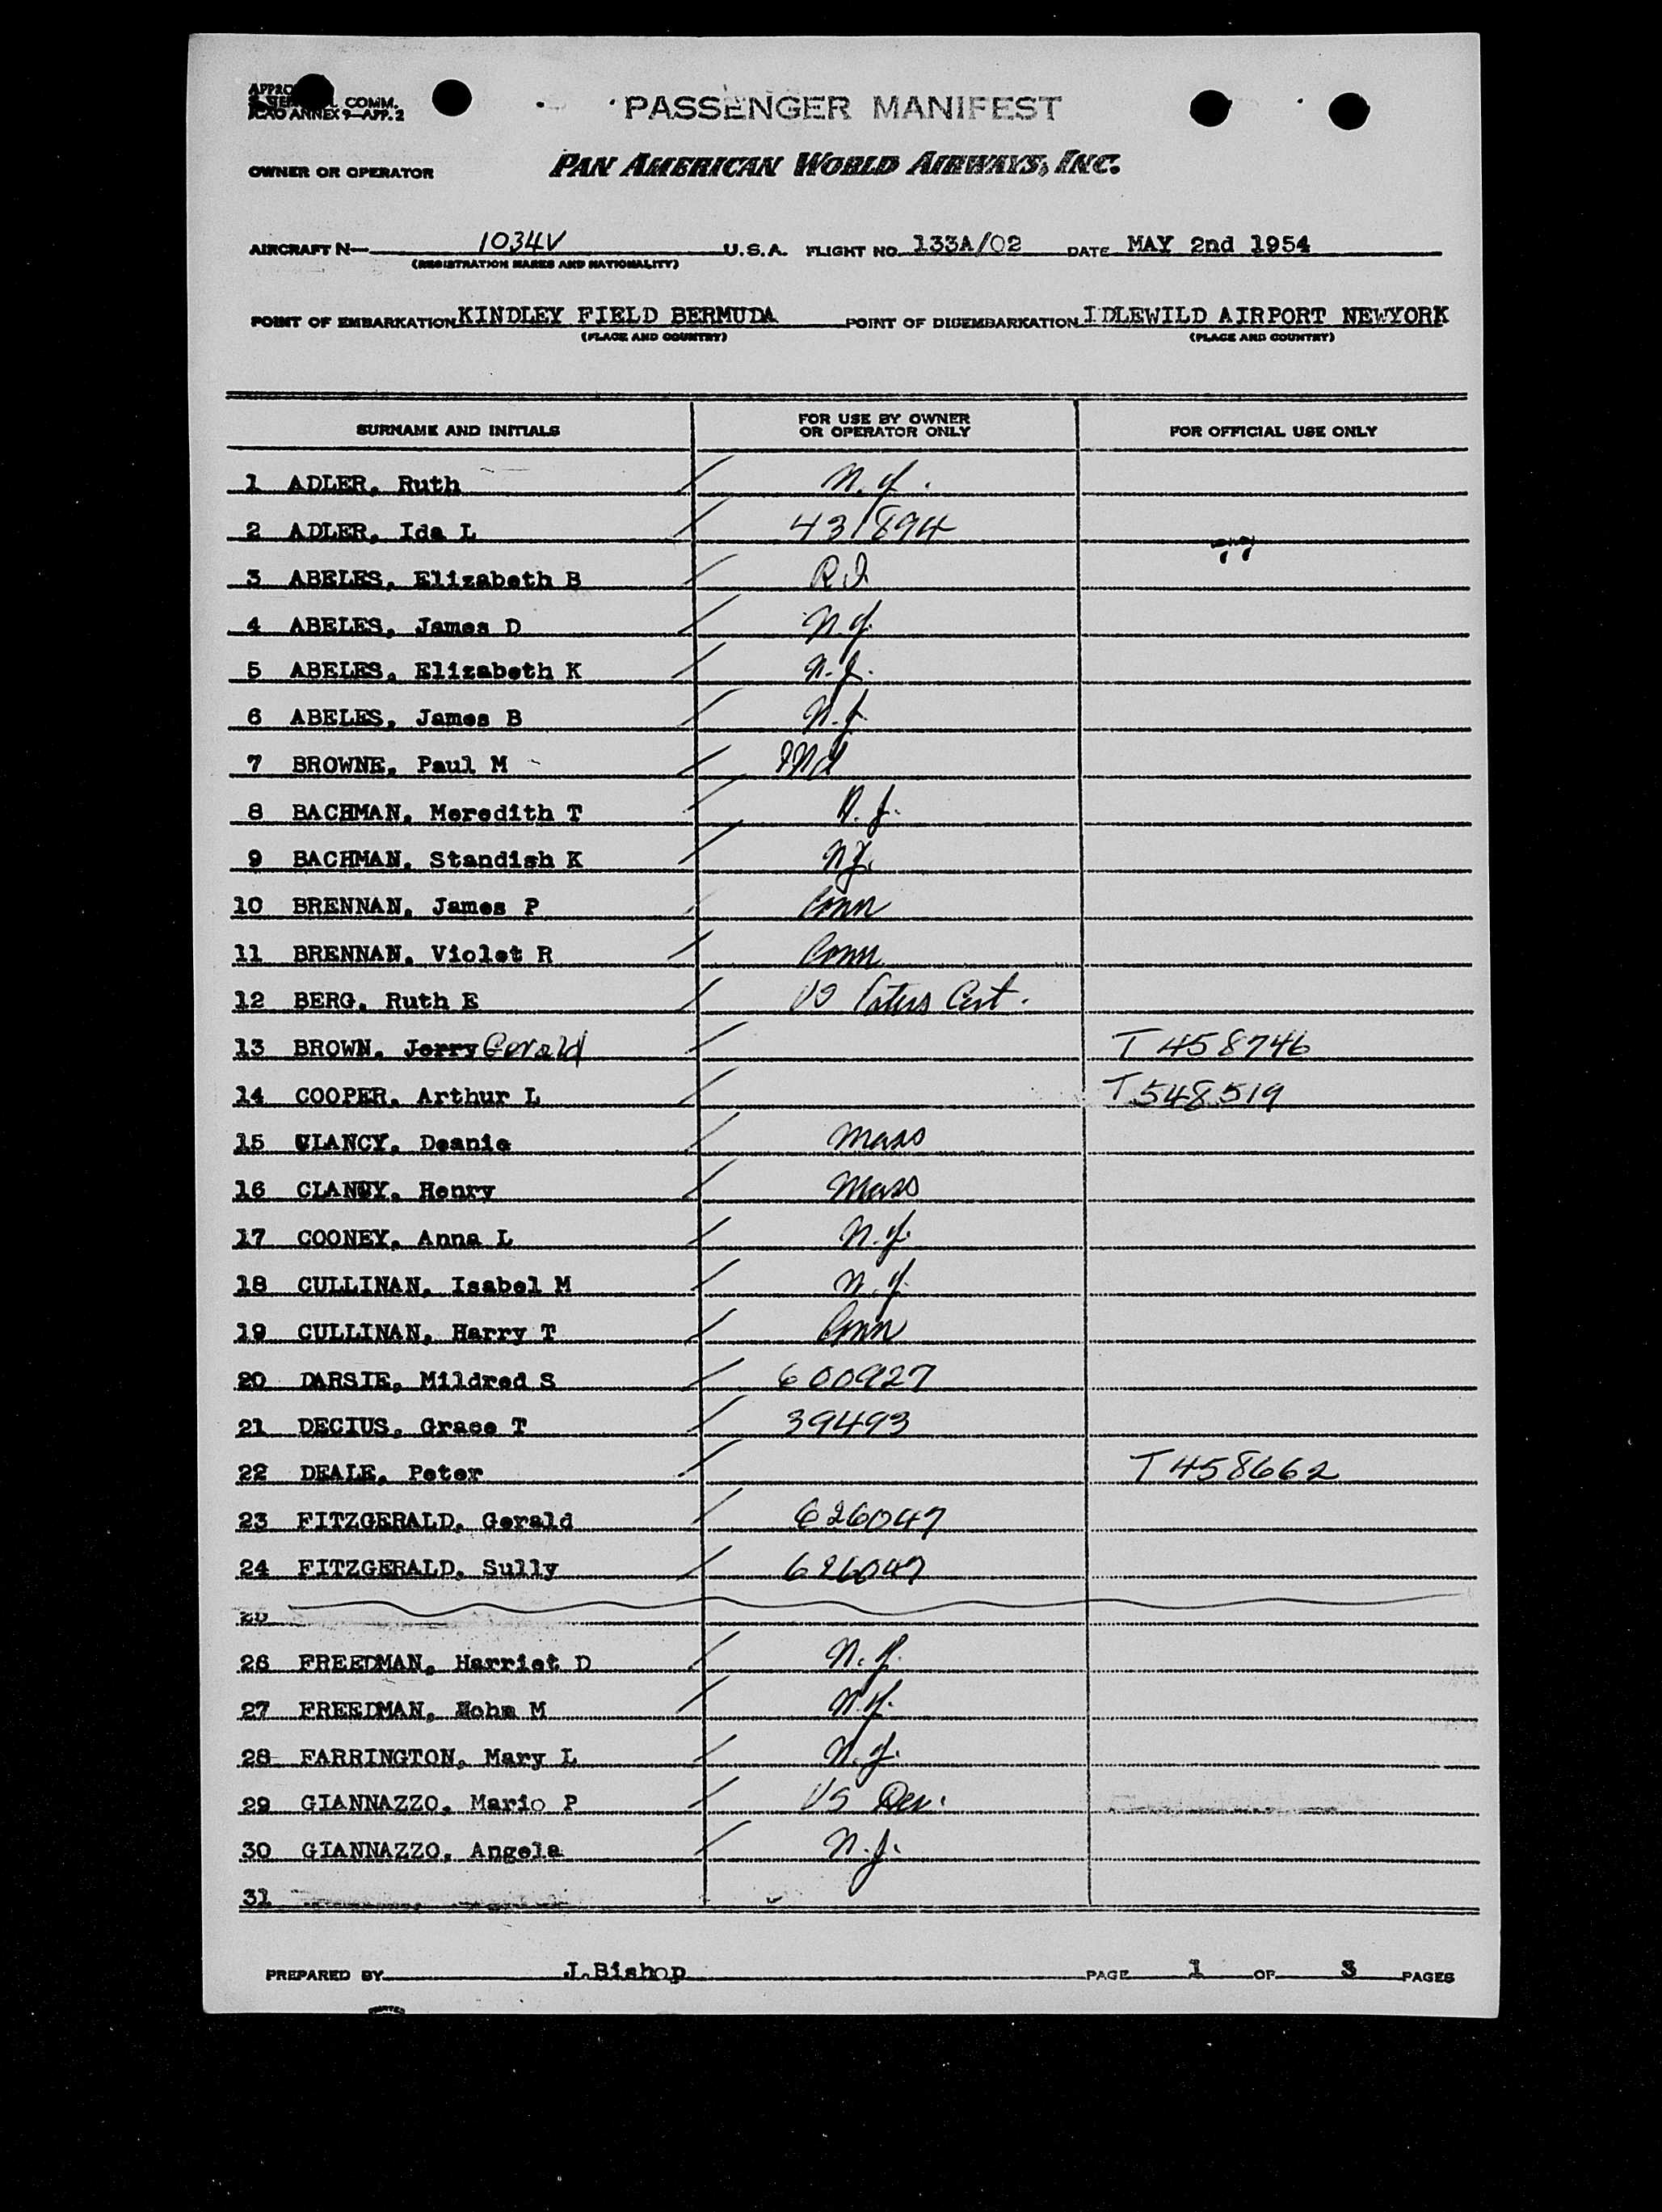 PASSENGER MANIFEST
COMM.
ICAO ANNEX 9—APP. 2
OWNER OR OPERATOR PAN AMERICAN WORLD AIRWAYS, INC.
AIRCRAFT N— 1034V U.S.A. FLIGHT NO. 133A/02 DATE MAY 2nd 1954
(REGISTRATION MARKS AND NATIONALITY)
POINT OF EMBARKATION KINDLEY FIELD BERMUDA POINT OF DISEMBARKATION IDLEWILD AIRPORT NEWYORK
(PLACE AND COUNTRY) (PLACE AND COUNTRY)
SURNAME AND INITIALS FOR USE BY OWNER OR OPERATOR ONLY FOR OFFICIAL USE ONLY
1 ADLER, Ruth / N.Y.
2 ADLER, Ida L / 431894
3 ABELES, Elizabeth B / R.I.
4 ABELES, James D / N.Y.
5 ABELES, Elizabeth K / N.J.
6 ABELES, James B / N.J.
7 BROWNE, Paul M /
8 BACHMAN, Meredith T / N.J.
9 BACHMAN, Standish K / N.J.
10 BRENNAN, James P / Conn
11 BRENNAN, Violet R / Conn
12 BERG, Ruth E / US Cert.
13 BROWN, Jerry Gerald / T458746
14 COOPER, Arthur L / T548519
15 CLANCY, Deanie / Mass
16 CLANCY, Henry / Mass
17 COONEY, Anna L / N.Y.
18 CULLINAN, Isabel M / N.Y.
19 CULLINAN, Harry T / Conn
20 DARSIE, Mildred S / 600927
21 DECIUS, Grace T / 39493
22 DEALE, Peter / T458662
23 FITZGERALD, Gerald / 626047
24 FITZGERALD, Sully / 626047
25
26 FREEDMAN, Harriet D / N.Y.
27 FREEDMAN, M / N.Y.
28 FARRINGTON, Mary L / N.J.
29 GIANNAZZO, Mario P / US
30 GIANNAZZO, Angela / N.J.
31
PREPARED BY J.Bishop PAGE 1 OF 3 PAGES